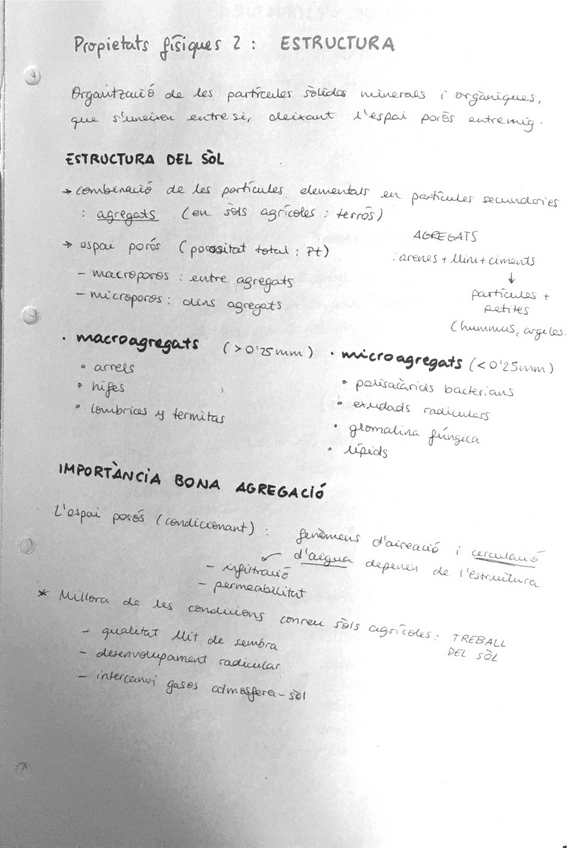 Propietats físiques 2: ESTRUCTURA
Organització de les partícules sòlides minerals i orgàniques,
que s'uneixen entre si, deixant l'espai porós entremig.
ESTRUCTURA DEL SÒL
→ combinació de les partícules elementals en partícules secundaries
: agregats (en sòls agrícoles: terròs)
→ espai porós (porositat total: Pt)
- macroporos: entre agregats
- microporos: dins agregats
AGREGATS
arenes + llim + ciments
↓
partícules +
petites
(hummus, argiles.
· macroagregats (>0'25mm)
• arrels
• hifes
• lombrices y termitas
· microagregats (<0'25mm)
• polisacàrids bacterians
• exudads radiculars
• glomalina fúngica
• lípids
IMPORTÀNCIA BONA AGREGACIÓ
L'espai porós (condicionant): fenòmens d'aireació i circulació
d'aigua depenen de l'estructura
- infiltració
- permeabilitat
* Millora de les condicions conreu sòls agrícoles: TREBALL
DEL SÒL
- qualitat llit de sembra
- desenvolupament radicular
- intercanvi gasos atmosfera-sòl